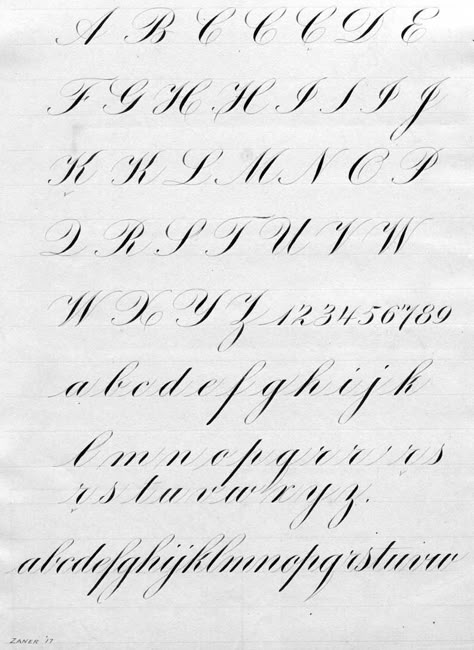 A B C C C D E
F G H H I I I J
K K L M N O P
Q R S T U V W
W X Y Z 1234567890
a b c d e f g h i j k
l m n o p q r r r s
r s t u v w x y z.
abcdefghijklmnopqrstuvw
ZANER '17